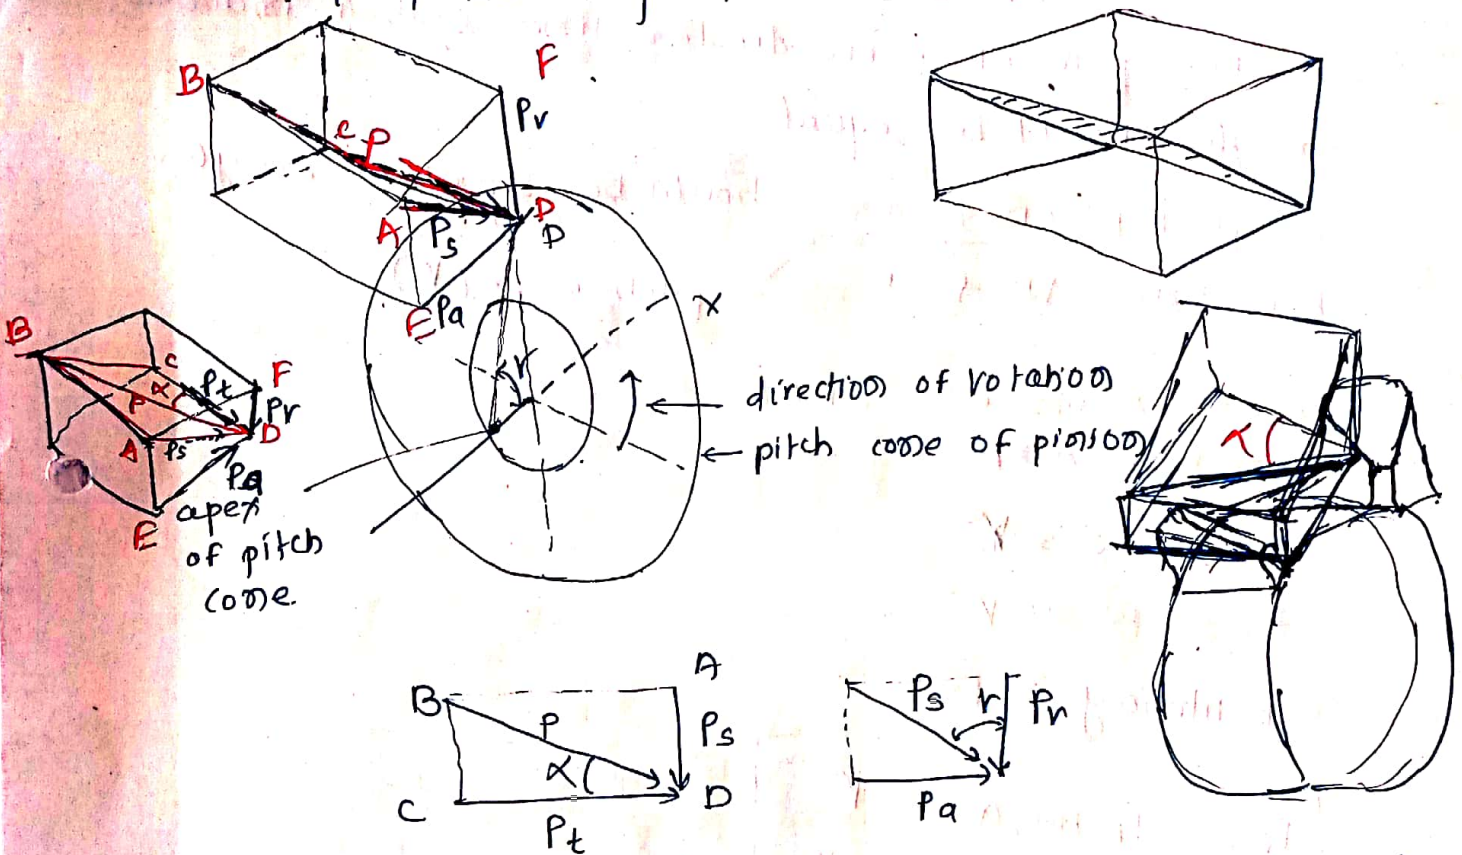 B
F
Pr
C
P
D
A
Ps
D
E
Pa
x
r
direction of rotation
pitch cone of pinion
B
C
α
Pt
F
P
Pr
A
Ps
D
Pa
E
apex
of pitch
cone.
α
A
B
P
Ps
α
C
D
Pt
Ps
r
Pr
Pa